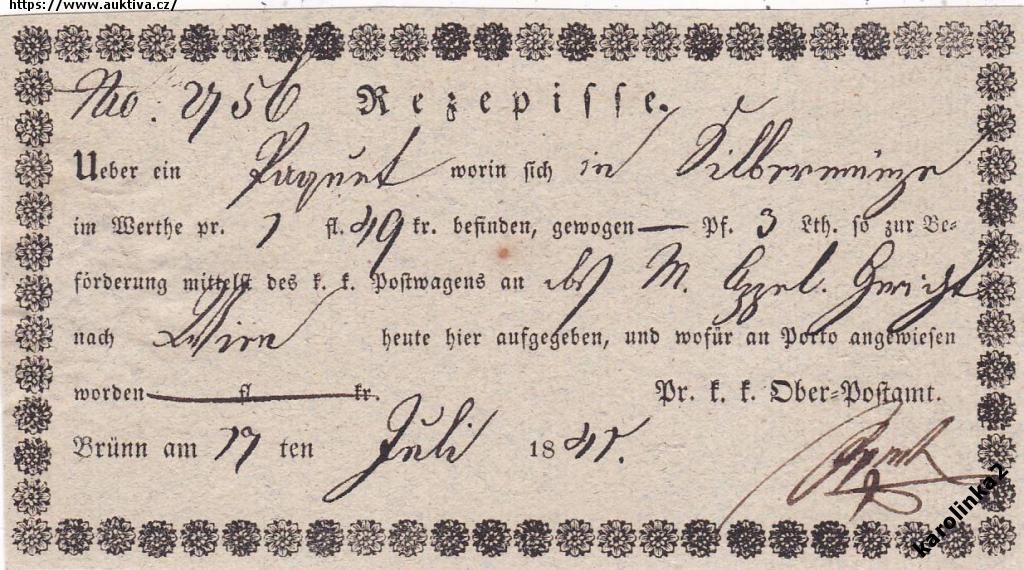 https://www.auktiva.cz/
Nro. 2756 Rezepisse.
Ueber ein Paquet worin sich in Silbermünze
im Werthe pr. 1 fl. 49 kr. befinden, gewogen — Pf. 3 Lth. so zur Be-
förderung mittelst des k. k. Postwagens an M. Appel. Gericht
nach Wien heute hier aufgegeben, und wofür an Porto angewiesen
worden — fl. — kr. Pr. k. k. Ober-Postamt.
Brünn am 17 ten Juli 1841.
karolinka2